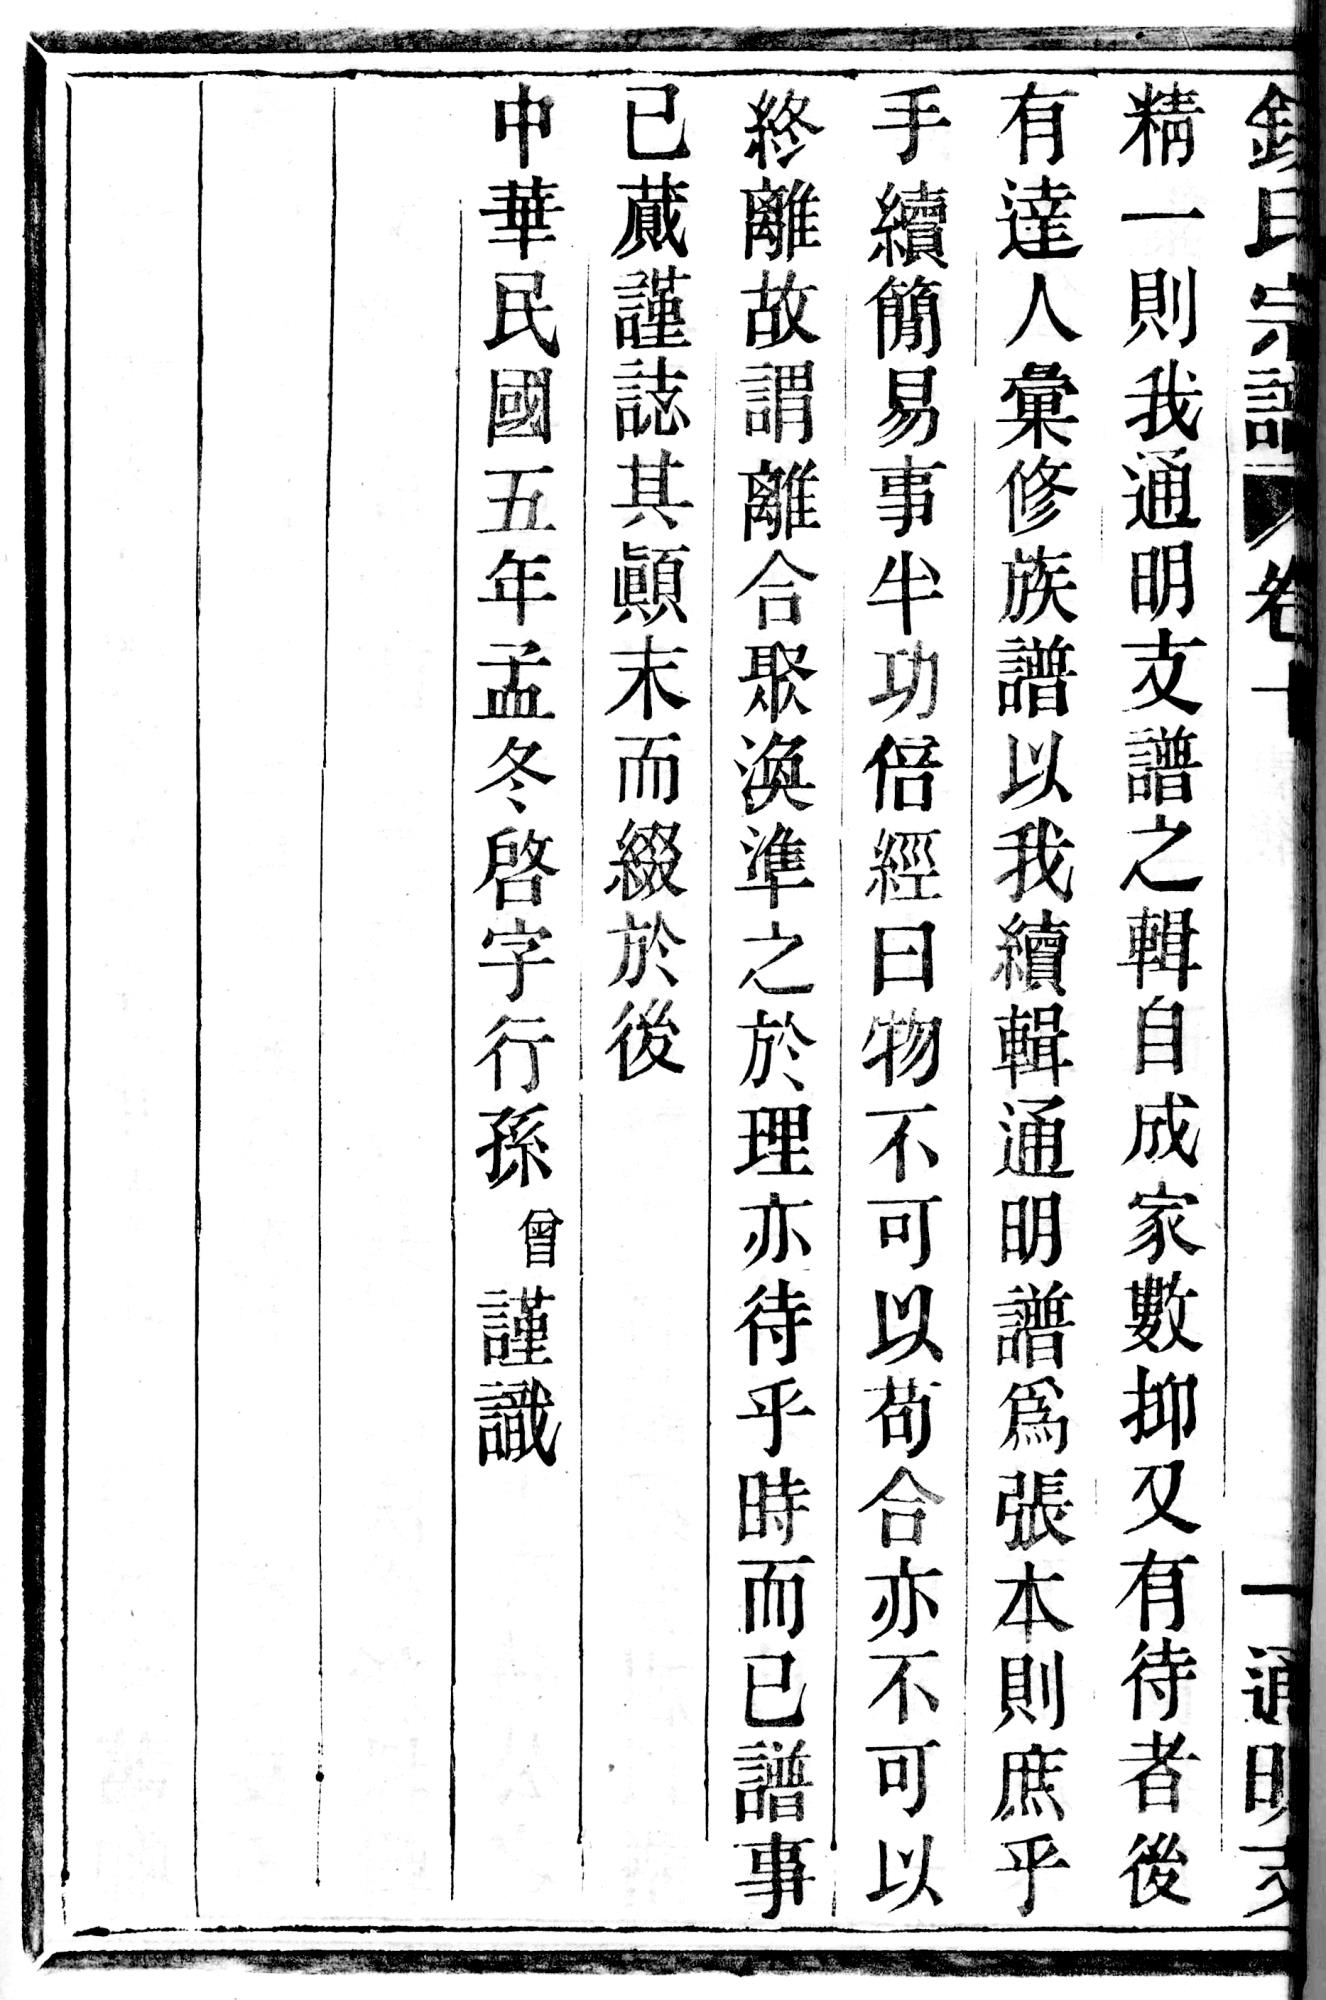 氏宗譜 卷十 一 通明支
精一則我通明支譜之輯自成家數抑又有待者後
有達人彙修族譜以我續輯通明譜爲張本則庶乎
手續簡易事半功倍經曰物不可以苟合亦不可以
終離故謂離合聚渙準之於理亦待乎時而已譜事
已蕆謹誌其顚末而綴於後
中華民國五年孟冬啓字行孫曾謹識